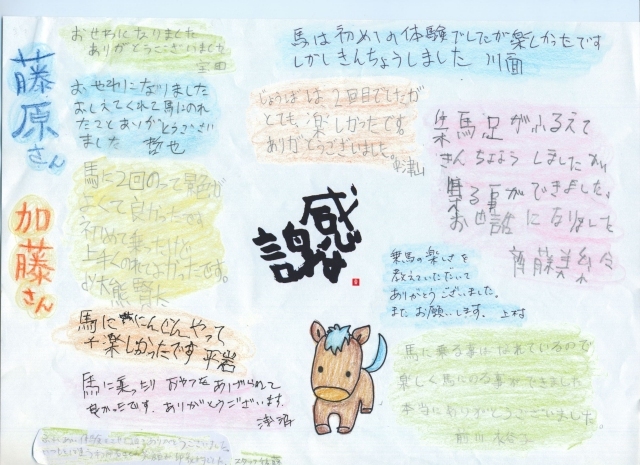 藤原さん
加藤さん
おせわになりました
ありがとうございました
おせわになりました
おしえてくれて馬にのれ
たことありがとうござい
ました 哲也
馬に2回のって景色が
よくて良かったです。
初めて乗ったけど
上手くのれてよかったです。
馬ににんじんやって
楽しかったです 平岩
馬に乗ったり おやつをあげられて
良かったです。ありがとうございます。
馬は初めての体験でしたが楽しかったです
しかしきんちょうしました 川面
じょうばは2回目でしたが
とても楽しかったです。
ありがとうございました。
感謝
乗馬足がふるえて
きんちょうしましたが
乗る事ができました。
お世話になりました
乗馬の楽しさを
教えていただいて
ありがとうございました。
またお願いします。 上村
馬に乗る事はなれているので
楽しく馬にのる事ができました
本当にありがとうございました。